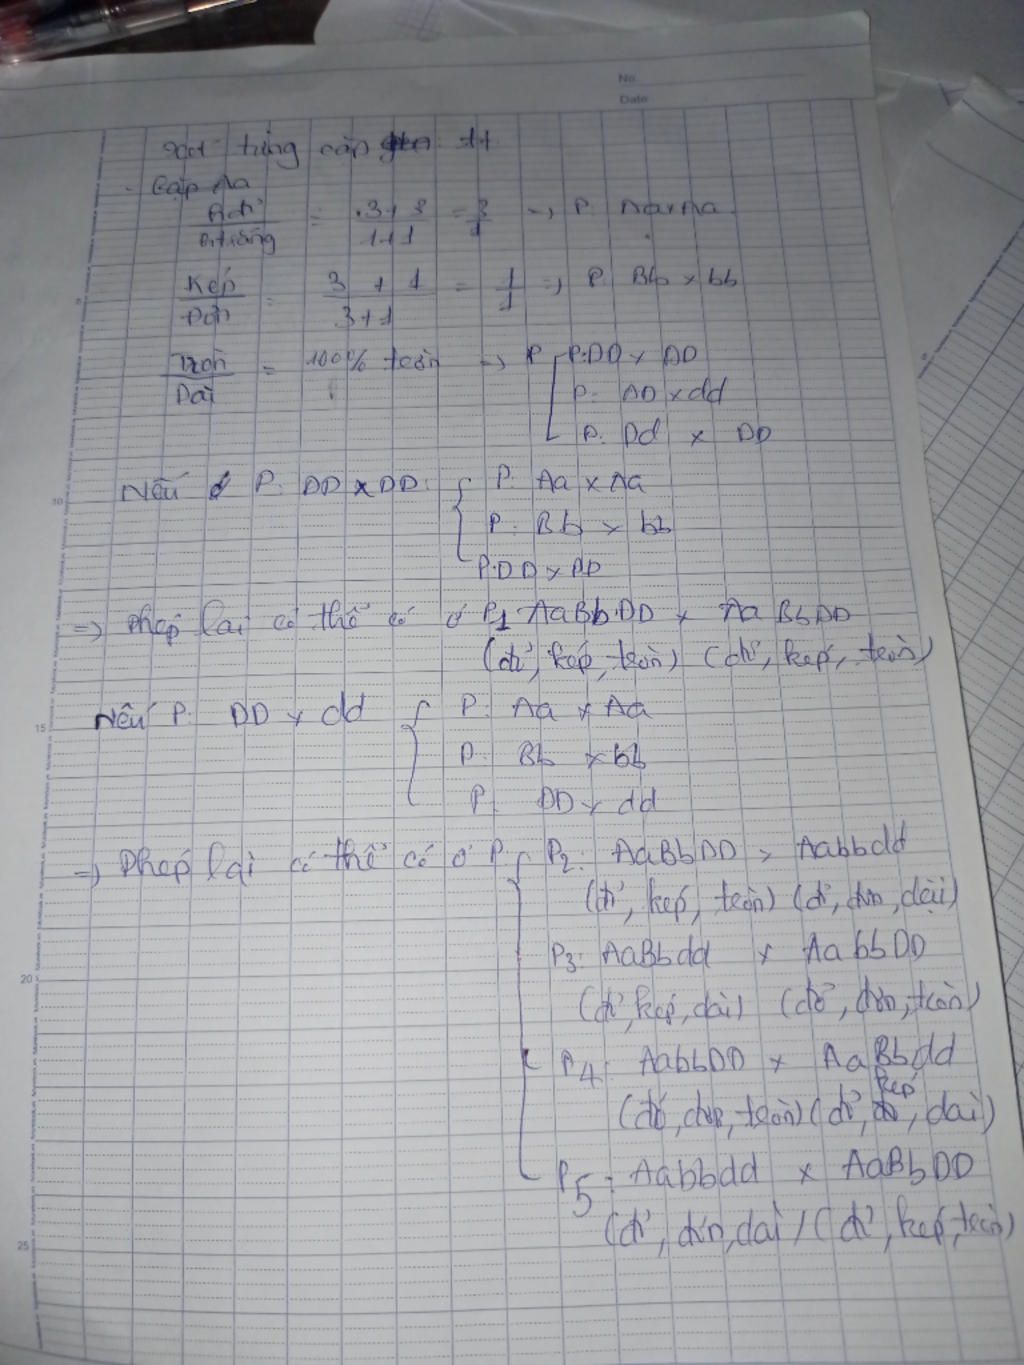 No.
Date
Xét từng cặp tt
- Cặp Aa
A.đỏ / a.trắng = 3+3 / 1+1 = 3/1 => P: Aa x Aa
Kép / Đơn = 3 + 1 / 3+1 = 1/1 => P: Bb x bb
Tròn / Dài = 100% tròn => P P: DD x DD
P: DD x dd
P: Dd x DD
10
Nếu P: DD x DD: P: Aa x Aa
P: Bb x bb
P: DD x DD
=> Phép lai có thể có ở P1 AaBbDD x AaBbDD
(đỏ, kép, tròn) (đỏ, kép, tròn)
15
Nếu P: DD x dd P: Aa x Aa
P: Bb x bb
P: DD x dd
=> Phép lai có thể có ở P: P2: AaBbDD x Aabbdd
(đỏ, kép, tròn) (đỏ, đơn, dài)
P3: AaBbdd x AabbDD
20
(đỏ, kép, dài) (đỏ, đơn, tròn)
P4: AabbDD x AaBbdd
kép
(đỏ, đơn, tròn) (đỏ, , dài)
P5: Aabbdd x AaBbDD
(đỏ, đơn, dài) (đỏ, kép, tròn)
25